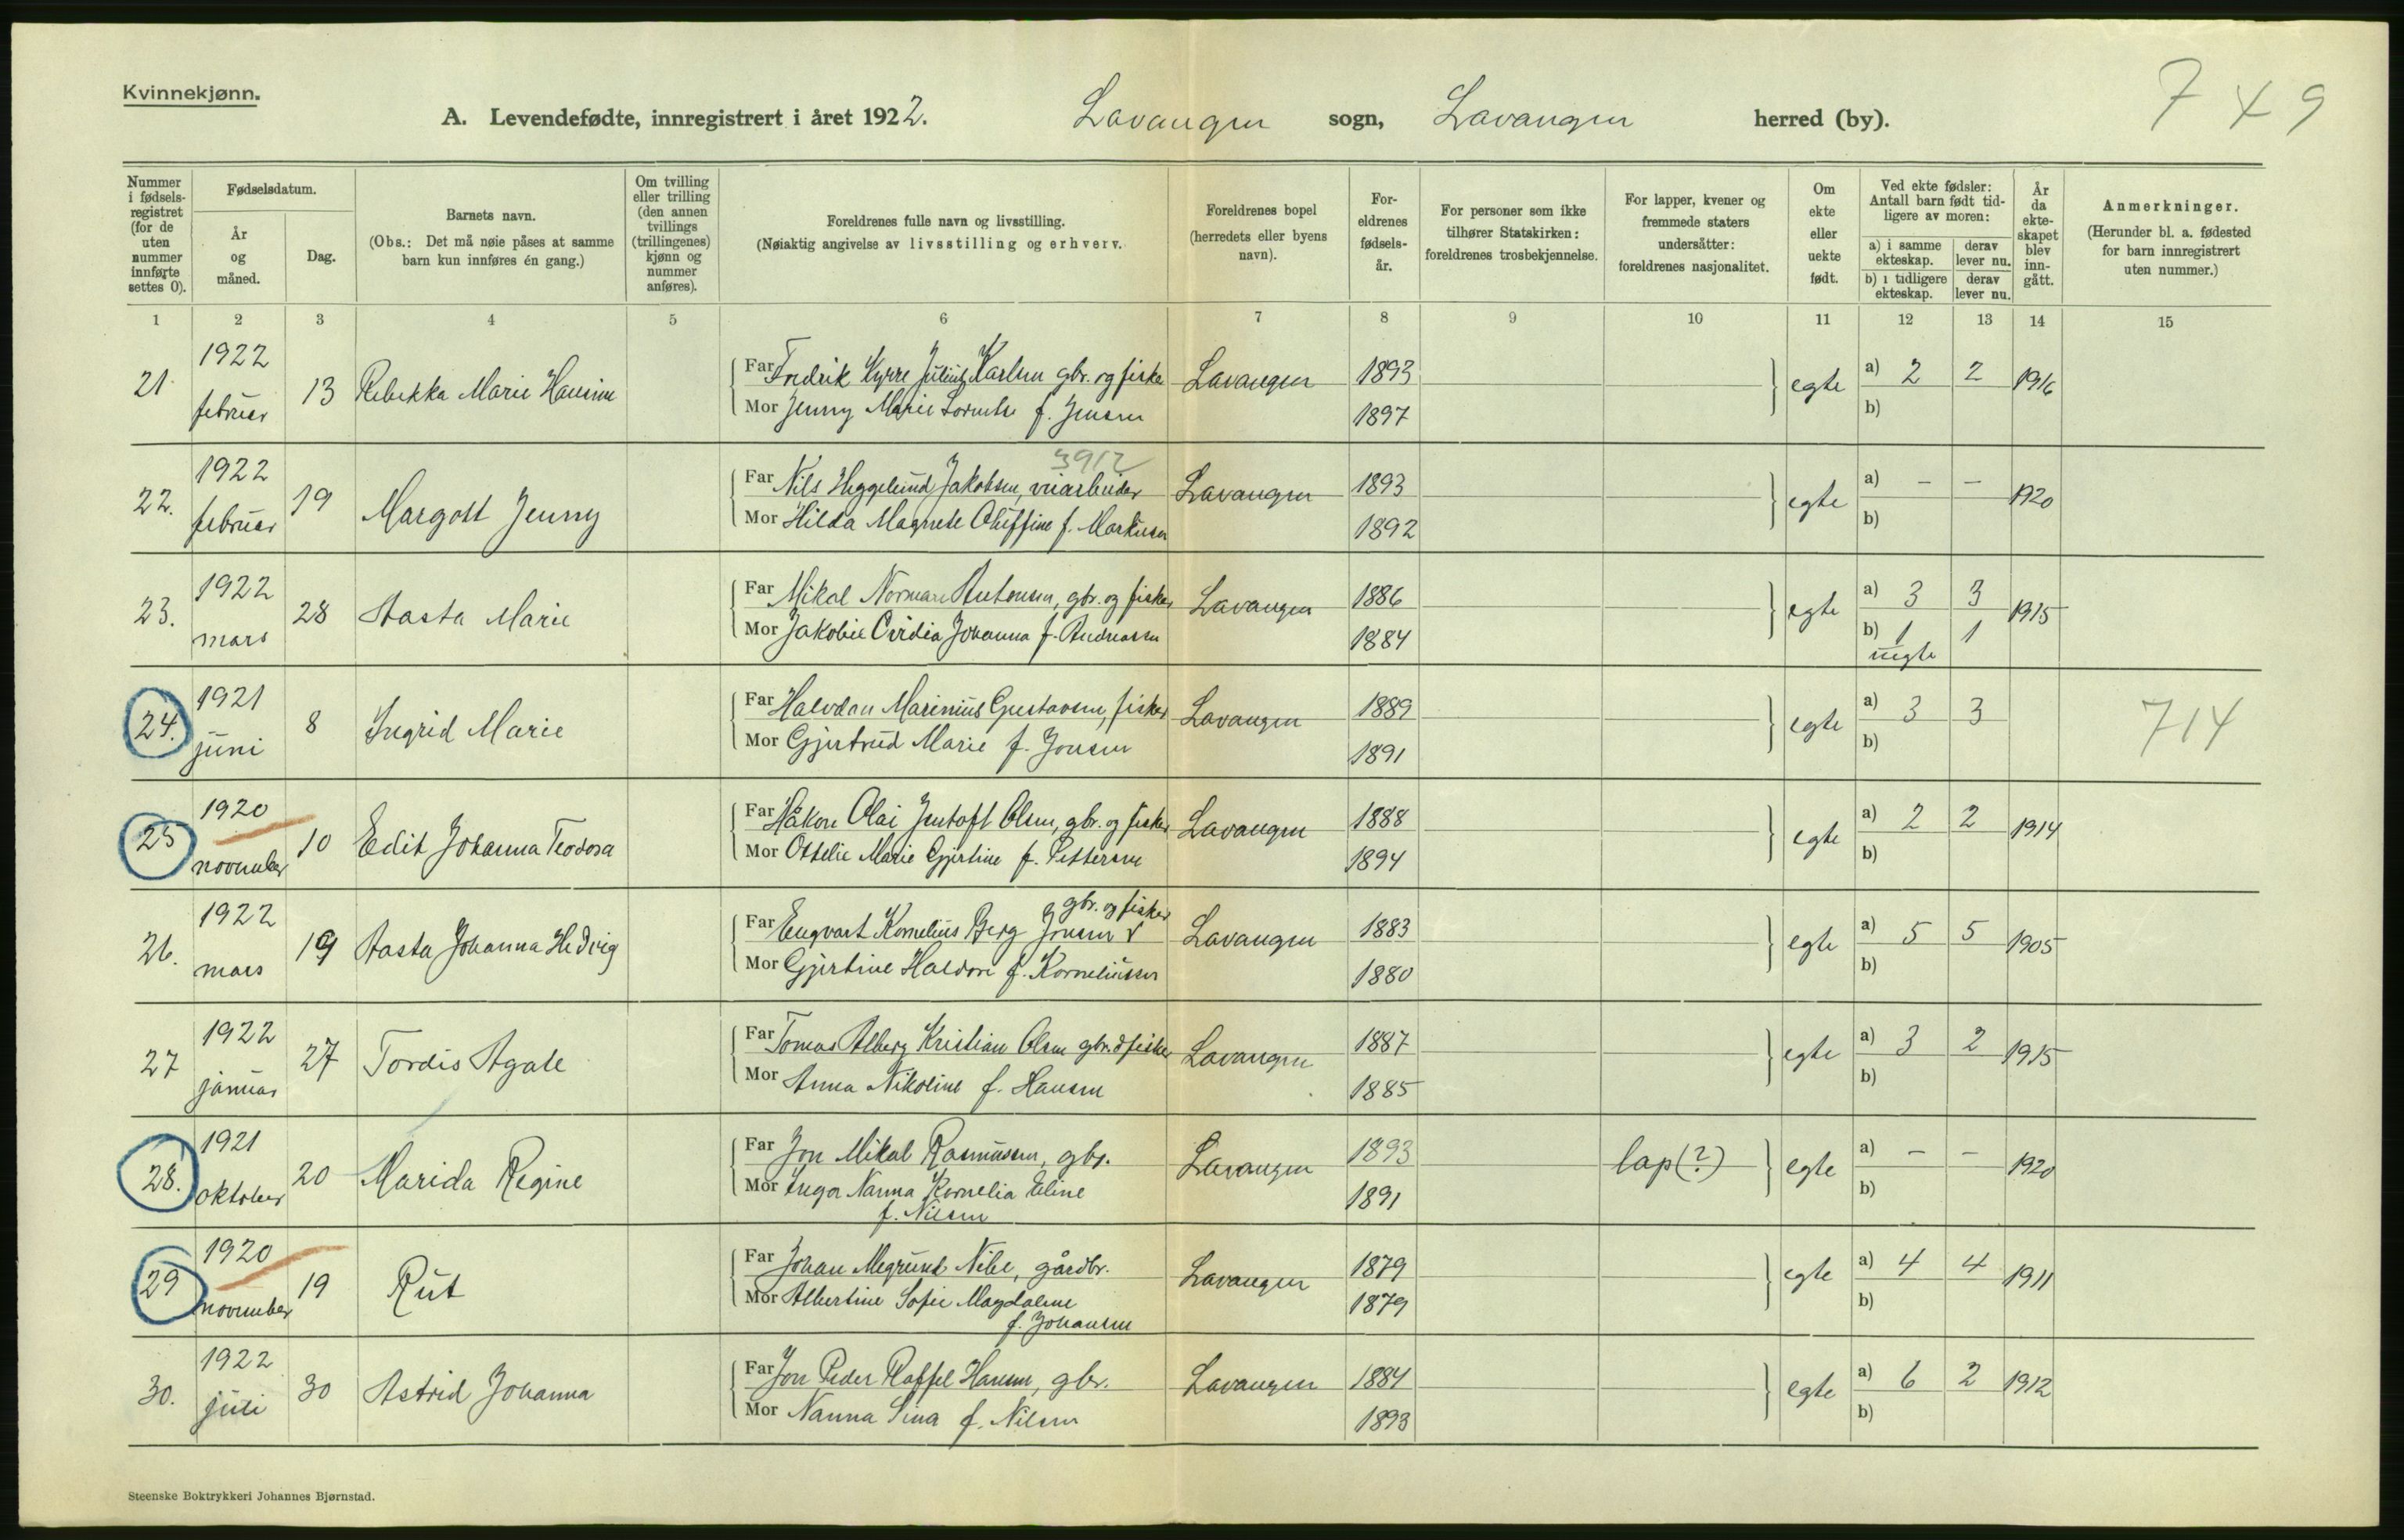 Kvinnekjønn.
A. Levendefødte, innregistrert i året 1922. Lavangen sogn, Lavangen herred (by).
749
Nummer i fødselsregistret (for de uten nummer innførte settes 0).
Fødselsdatum.
År og måned.
Dag.
Barnets navn.
(Obs.: Det må nøie påses at samme barn kun innføres én gang.)
Om tvilling eller trilling (den annen tvillings (trillingenes) kjønn og nummer anføres).
Foreldrenes fulle navn og livsstilling.
(Nøiaktig angivelse av livsstilling og erhverv.
Foreldrenes bopel (herredets eller byens navn).
Foreldrenes fødselsår.
For personer som ikke tilhører Statskirken: foreldrenes trosbekjennelse.
For lapper, kvener og fremmede staters undersåtter: foreldrenes nasjonalitet.
Om ekte eller uekte født.
Ved ekte fødsler: Antall barn født tidligere av moren:
a) i samme ekteskap. derav lever nu.
b) i tidligere ekteskap. derav lever nu.
År da ekteskapet blev inngått.
Anmerkninger.
(Herunder bl. a. fødested for barn innregistrert uten nummer.)
1 2 3 4 5 6 7 8 9 10 11 12 13 14 15
21 1922 februar 13 Rebekka Marie Hansine
Far Fredrik Kyrre Julius Karlsen gbr. og fisker Lavangen 1893 egte a) 2 2 1916
Mor Jenny Marie f. Jensen 1897 b)
3912
22. 1922 februar 19 Margott Jenny
Far Nils Heggelund Jakobsen, veiarbeider Lavangen 1893 egte a) - - 1920
Mor Hilda Magnete Oluffine f. Markusen 1892 b)
23. 1922 mars 28 Aasta Marie
Far Mikal Norman Antonsen, gbr. og fisker Lavangen 1886 egte a) 3 3 1915
Mor Jakobie Ovidia Johanna f. Andreassen 1884 b) 1 1
uegte
24. 1921 juni 8 Ingrid Marie
Far Halvdan Marinius Gustavsen, fisker Lavangen 1889 egte a) 3 3 714
Mor Gjertrud Marie f. Jonsen 1891 b)
25 1920 november 10 Edit Johanna Teodora
Far Håkon Olai Jentoft Olsen, gbr. og fisker Lavangen 1888 egte a) 2 2 1914
Mor Ottelie Marie Gjertine f. Pettersen 1894 b)
26. 1922 mars 19 Aasta Johanna Hedvig
gbr. og fisker
Far Engvart Kornelius Berg Jonsen Lavangen 1883 egte a) 5 5 1905
Mor Gjertine Haldore f. Korneliussen 1880 b)
27 1922 januar 27 Tordis Agate
Far Tomas Alberg Kristian Olsen gbr. & fisker Lavangen 1887 egte a) 3 2 1915
Mor Anna Nikoline f. Hansen 1885 b)
28. 1921 oktober 20 Marida Regine
Far Jon Mikal Rasmussen, gbr. Lavangen 1893 lap (?) egte a) - - 1920
Mor Inga Nanna Kornelia Eline 1891 b)
f. Nilsen
29 1920 november 19 Rut
Far Johan Nibe, gårdbr. Lavangen 1879 egte a) 4 4 1911
Mor Albertine Sofie Magdalene 1879 b)
f. Johansen
30. 1922 juli 30 Astrid Johanna
Far Jon Peder Raffel Hansen, gbr. Lavangen 1884 egte a) 6 2 1912
Mor Nanna Sina f. Nilsen 1893 b)
Steenske Boktrykkeri Johannes Bjørnstad.